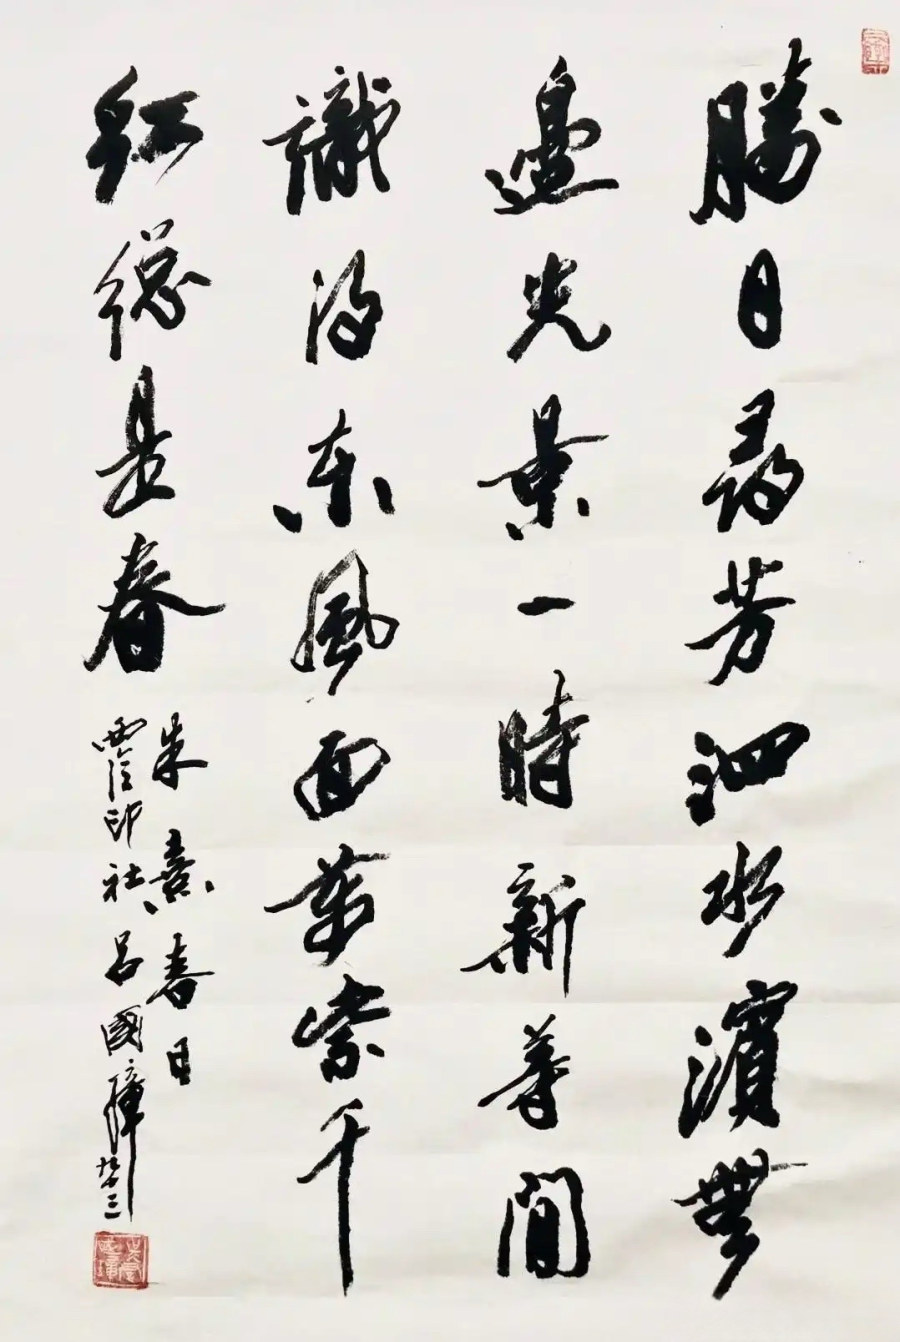 勝日尋芳泗水濱無
邊光景一時新等閒
識得東風面萬紫千
紅總是春
朱熹春日
西泠印社呂國璋九十三